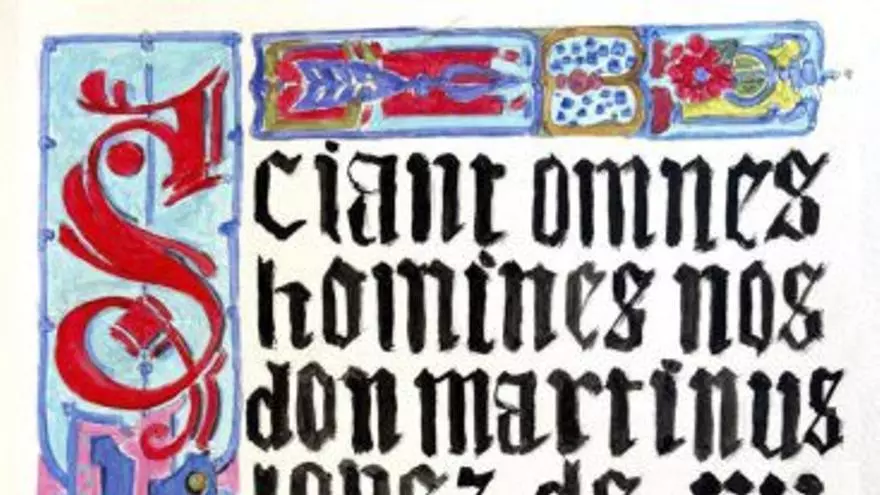 Sciant omnes
homines nos
don martinus
lopez de